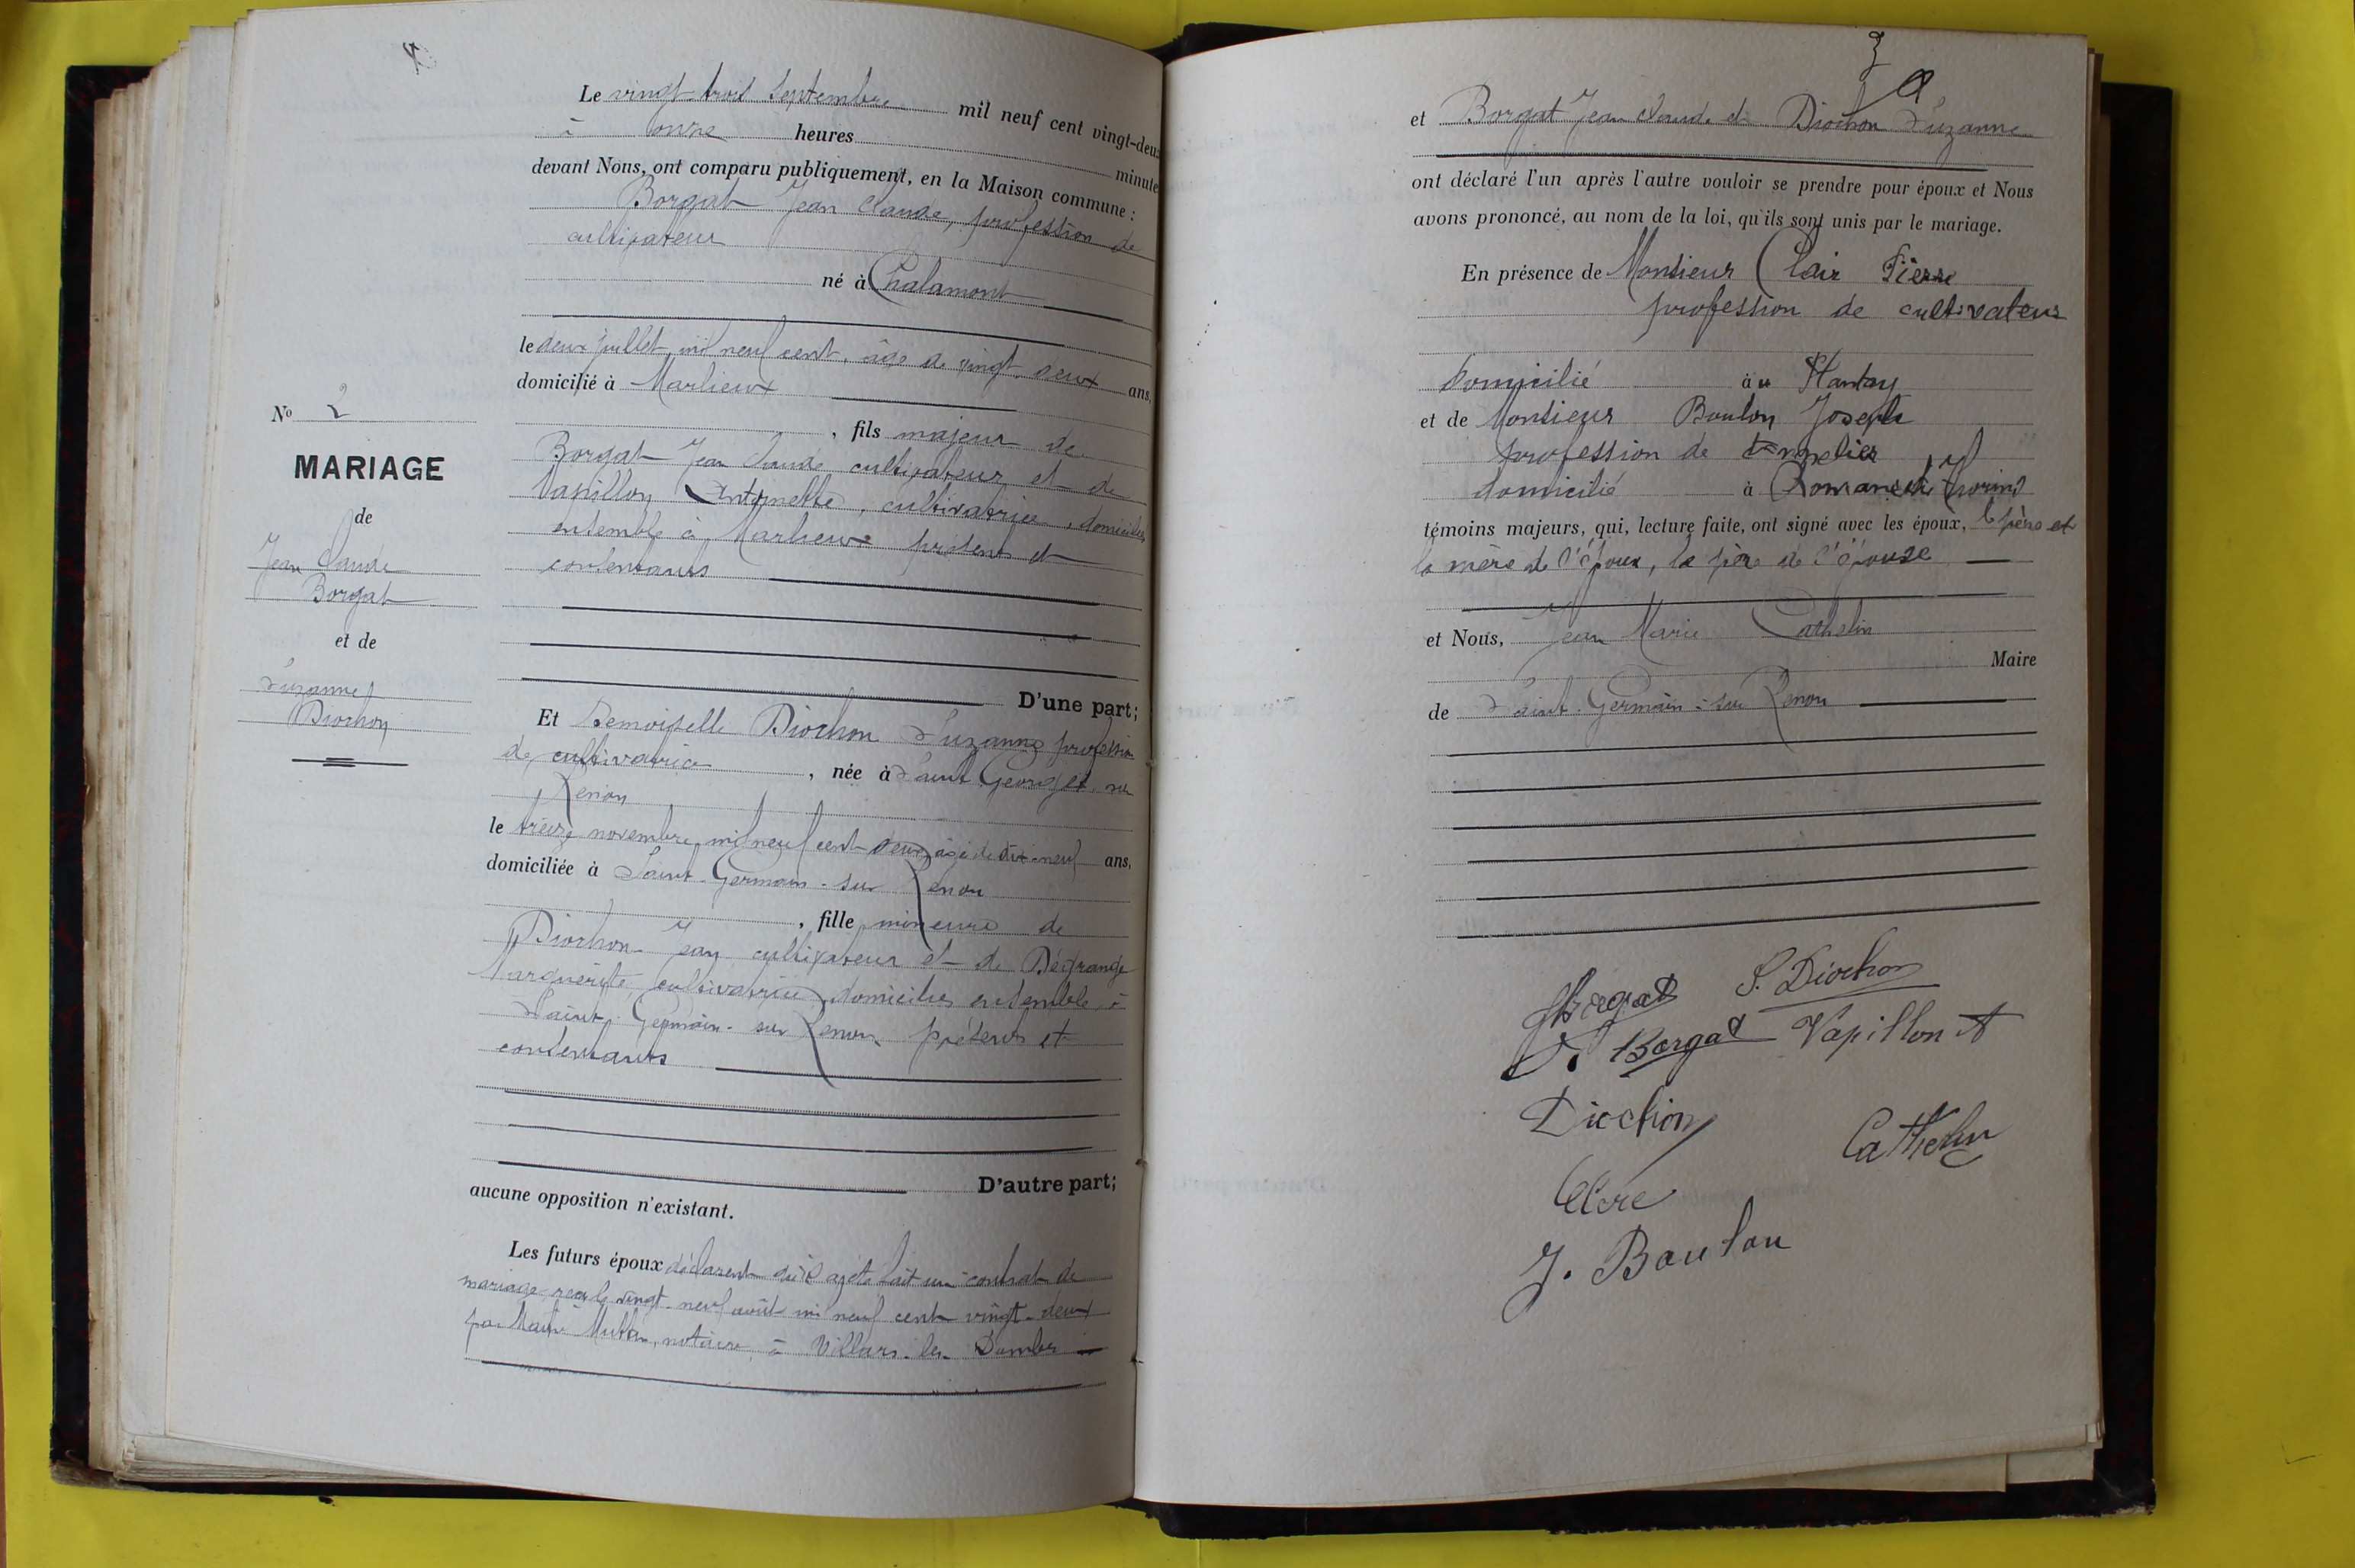 Le vingt-trois Septembre mil neuf cent vingt-deux
à onze heures minute
devant Nous, ont comparu publiquement, en la Maison commune :
Borgat Jean Claude, profession de
cultivateur
né à Chalamont
le deux juillet mil neuf cent, âgé de vingt-deux ans,
domicilié à Marlieux
, fils majeur de
Borgat Jean Claude cultivateur et de
Vapillon Antoinette, cultivatrice, domiciliés
ensemble à Marlieux présents et
consentants
D'une part;
Et Demoiselle Diochon Suzanne profession
de cultivatrice, née à Saint Georges sur
Renon
le treize novembre mil neuf cent deux, âgée de dix-neuf ans,
domiciliée à Saint-Germain-sur Renon
, fille mineure de
Diochon Jean cultivateur et de Dégrange
Marguerite, cultivatrice, domiciliés ensemble à
Saint-Germain-sur Renon présents et
consentants
D'autre part;
aucune opposition n'existant.
Les futurs époux déclarent qu'il a été fait un contrat de
mariage reçu le vingt-neuf août mil neuf cent vingt-deux
par Maître notaire à Villars-les-Dombes
No 2
MARIAGE
de
Jean Claude
Borgat
et de
Suzanne
Diochon
3
et Borgat Jean Claude et Diochon Suzanne
ont déclaré l'un après l'autre vouloir se prendre pour époux et Nous
avons prononcé, au nom de la loi, qu'ils sont unis par le mariage.
En présence de Monsieur Clair Pierre
profession de cultivateur
domicilié à Plantay
et de Monsieur Boulon Joseph
profession de
domicilié à Romanèche Thorins
témoins majeurs, qui, lecture faite, ont signé avec les époux, le père et
la mère de l'époux, le père de l'épouse
et Nous, Jean Marie Cathelin
Maire
de Saint-Germain-sur Renon
Borgat S. Diochon
Borgat Vapillon A
Diochon
Cathelin
Clere
J. Boulon